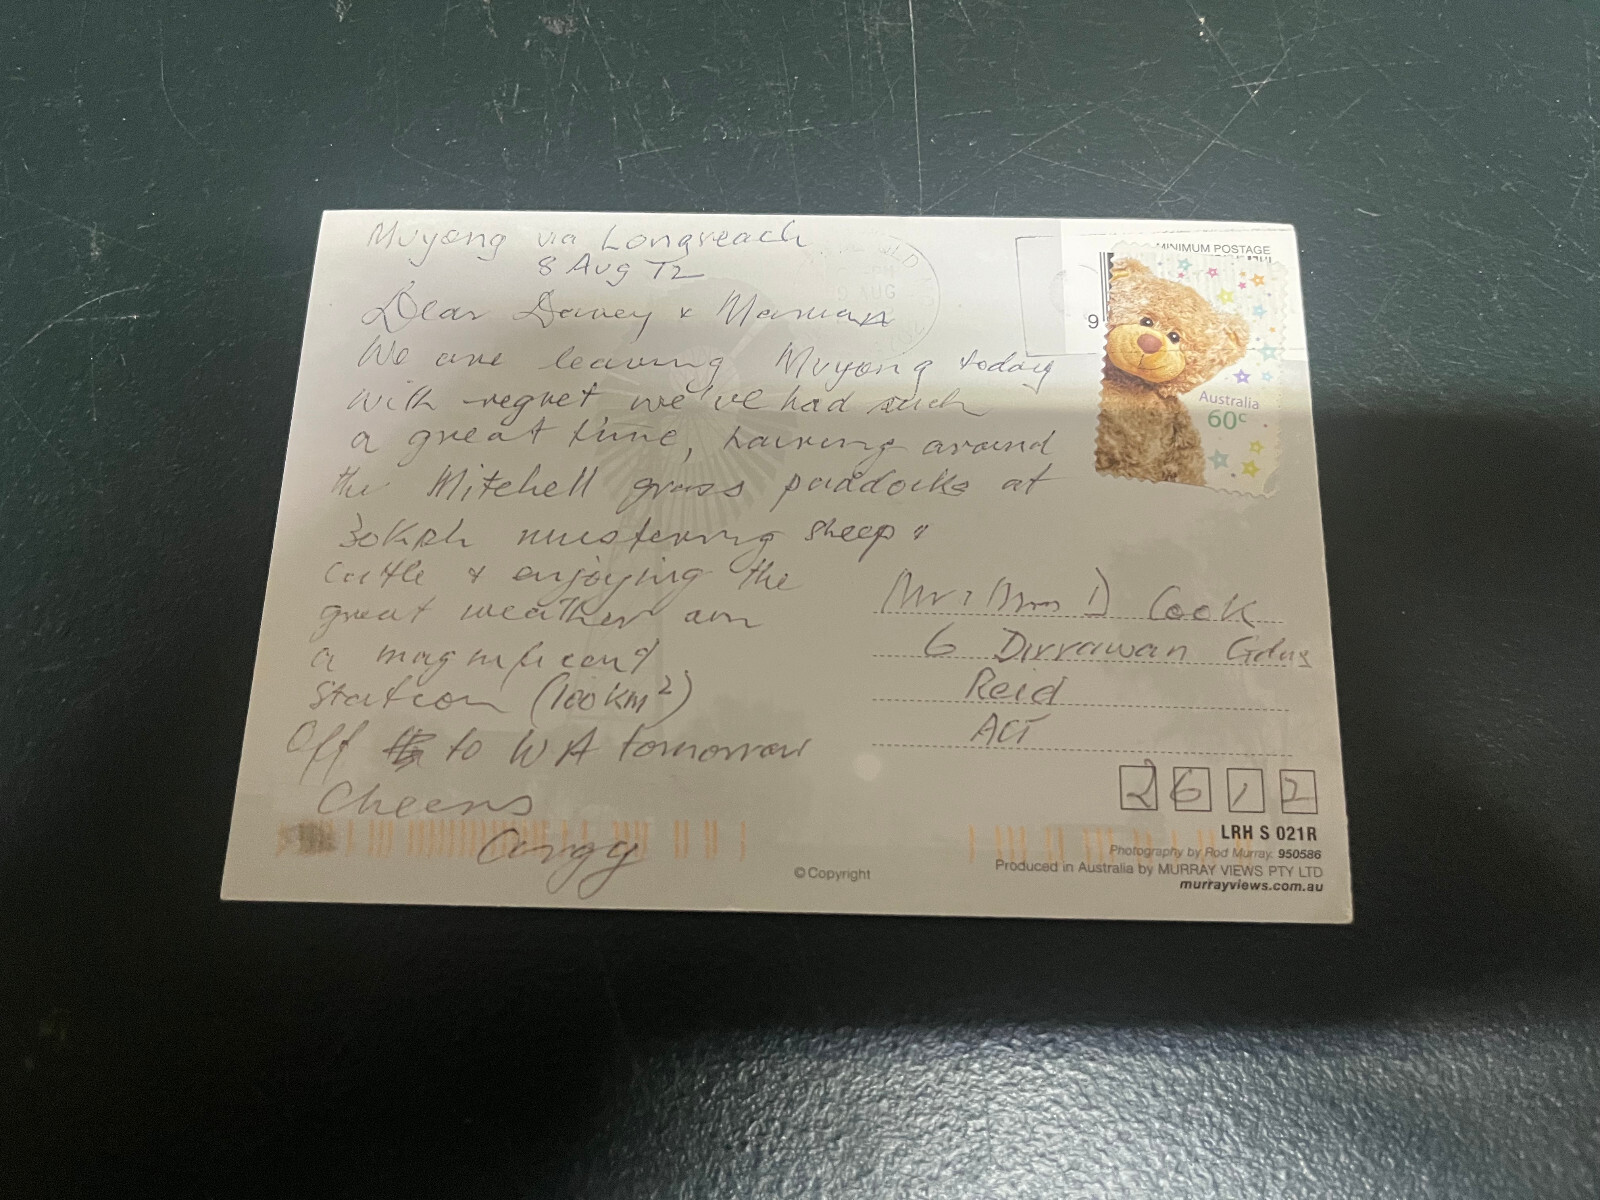 Muyong via Longreach
8 Aug 12
Dear Davey & Marian
We are leaving Muyong today
with regret, we've had such
a great time, hairing around
the Mitchell grass paddocks at
30Kph mustering sheep &
cattle & enjoying the
great weather am
a magnificent
Station (100 km²)
Off to WA tomorrow
Cheers
QLD
9 AUG
MINIMUM POSTAGE
9
Australia
60c
Mr & Mrs D Cook
6 Dirrawan Gdns
Reid
ACT
2612
LRH S 021R
Photography by Rod Murray. 950586
Produced in Australia by MURRAY VIEWS PTY LTD
murrayviews.com.au
© Copyright